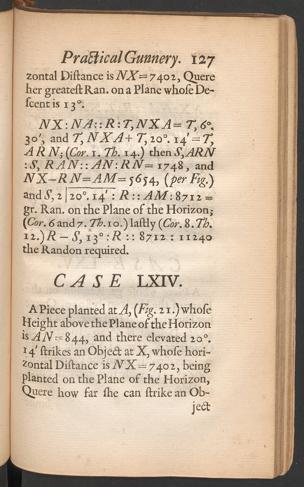 Practical Gunnery. 127
zontal Distance is NX=7402, Quere
her greatest Ran. on a Plane whose De-
scent is 13°.
NX : NA :: R : T, NXA = T, 6°.
30', and T, NXA + T, 20°. 14' = T,
ARN; (Cor. 1. Th. 14.) then S, ARN
: S, RAN :: AN : RN = 1748, and
NX–RN=AM=5654, (per Fig.)
and S, 2 | 20°. 14' : R :: AM : 8712 =
gr. Ran. on the Plane of the Horizon;
(Cor. 6 and 7. Th. 10.) lastly (Cor. 8. Th.
12.) R – S, 13° : R :: 8712 : 11240
the Randon required.
CASE LXIV.
A Piece planted at A, (Fig. 21.) whose
Height above the Plane of the Horizon
is AN=844, and there elevated 20°.
14' strikes an Object at X, whose hori-
zontal Distance is NX=7402, being
planted on the Plane of the Horizon,
Quere how far she can strike an Ob-
ject